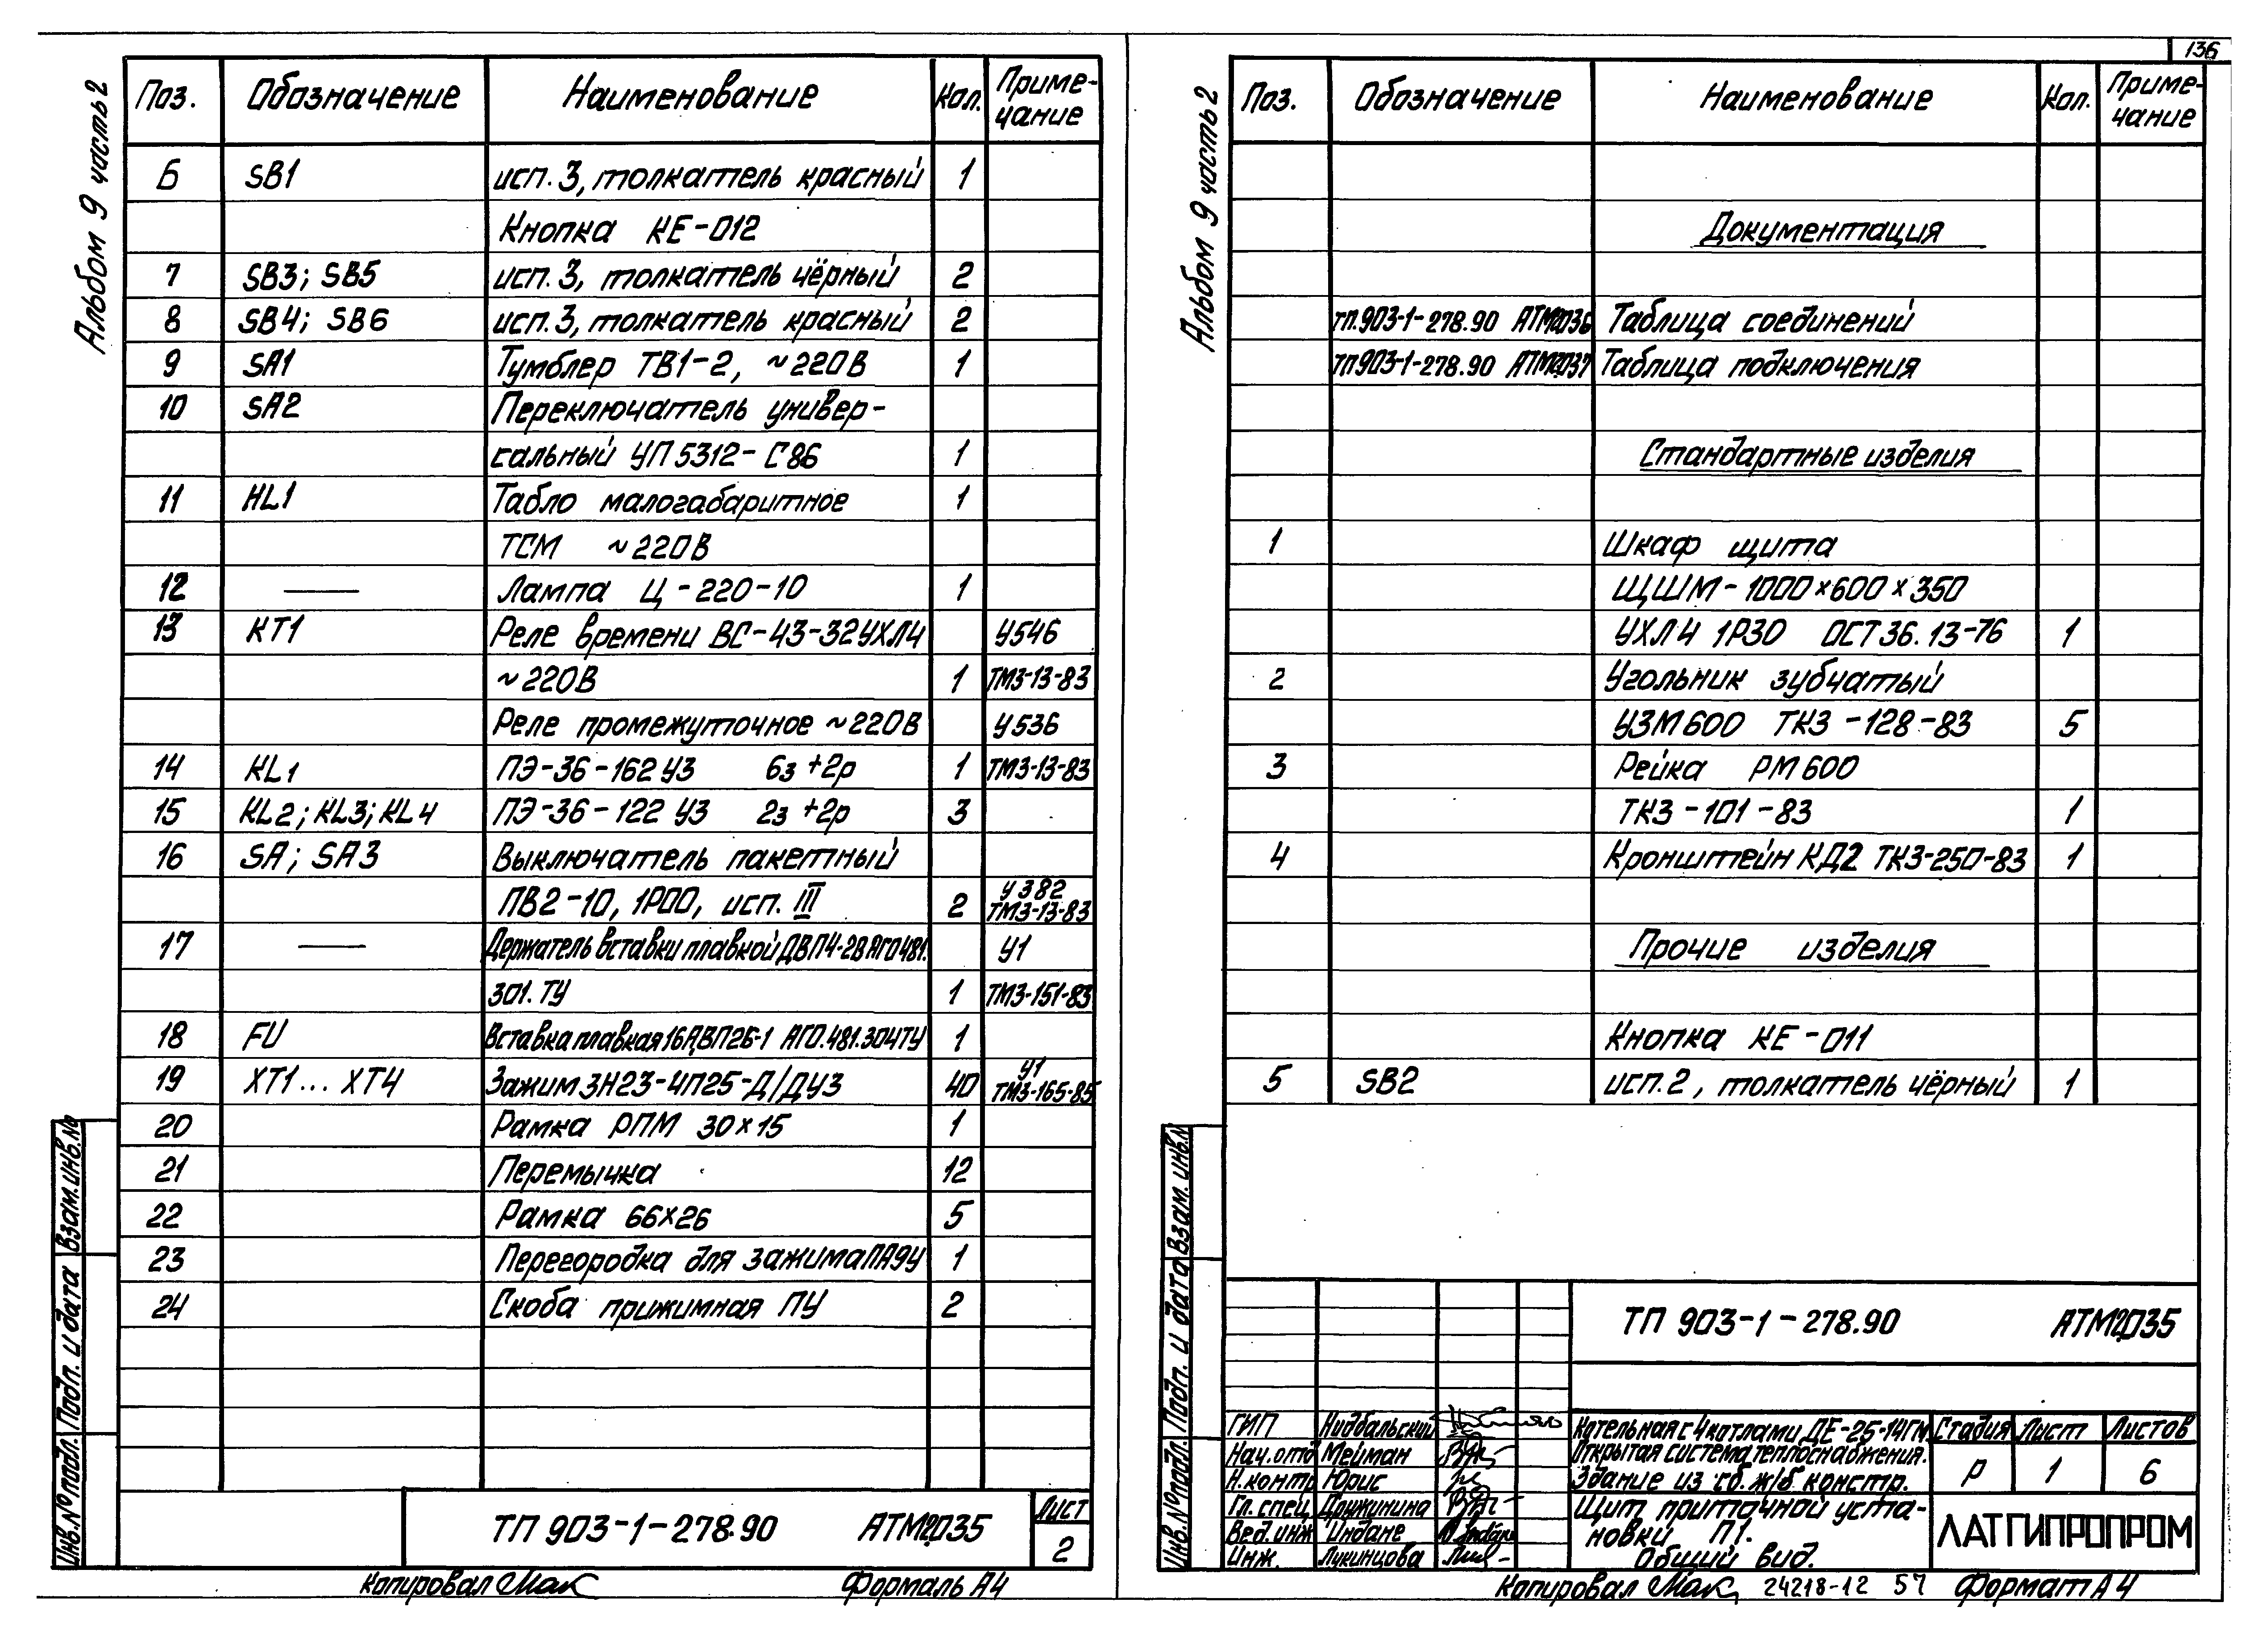 136
Альбом 9 часть 2
Поз. Обозначение Наименование Кол. Приме-
чание
6 SB1 исп. 3, толкатель красный 1
Кнопка КЕ-012
7 SB3; SB5 исп. 3, толкатель чёрный 2
8 SB4; SB6 исп. 3, толкатель красный 2
9 SA1 Тумблер ТВ1-2, ~220В 1
10 SA2 Переключатель универ-
сальный УП 5312-С86 1
11 HL1 Табло малогабаритное 1
ТСМ ~220В
12 — Лампа Ц-220-10 1
13 КТ1 Реле времени ВС-43-32УХЛ4 У546
~220В 1 ТМ3-13-83
Реле промежуточное ~220В У536
14 KL1 ПЭ-36-162 У3 6з+2р 1 ТМ3-13-83
15 KL2; KL3; KL4 ПЭ-36-122 У3 2з+2р 3
16 SA; SA3 Выключатель пакетный
ПВ2-10, 1Р00, исп. III 2 У382 ТМ3-13-83
17 — Держатель вставки плавкой ДВП4-2В АГО481.
301. ТУ 1 У1 ТМ3-151-83
18 FU Вставка плавкая 16А,ВП2Б-1 АГО.481.304ТУ 1
19 ХТ1... ХТ4 Зажим ЗН23-4П25-Д/ДУ3 40 У1 ТМ3-165-85
20 Рамка РПМ 30×15 1
21 Перемычка 12
22 Рамка 66×26 5
23 Перегородка для зажима ПА9У 1
24 Скоба прижимная ПУ 2
Инв. № подл. Подп. и дата Взам. инв. №
ТП 903-1-278.90 АТМ2.035
Лист
2
Копировал Мак Формать А4
Альбом 9 часть 2
Поз. Обозначение Наименование Кол. Приме-
чание
Документация
ТП.903-1-278.90 АТМ2.036 Таблица соединений
ТП 903-1-278.90 АТМ2.037 Таблица подключения
Стандартные изделия
1 Шкаф щита
ЩШМ-1000×600×350
УХЛ4 1Р30 ОСТ 36.13-76 1
2 Угольник зубчатый
УЗМ600 ТК3-128-83 5
3 Рейка РМ600
ТК3-101-83 1
4 Кронштейн КД2 ТК3-250-83 1
Прочие изделия
Кнопка КЕ-011
5 SB2 исп. 2, толкатель чёрный 1
Инв. № подл. Подп. и дата Взам. инв. №
ТП 903-1-278.90 АТМ2.035
ГИП Нидбальский
Нач. отд Мейман
Н. контр Юрис
Гл. спец. Дружинина
Вед. инж Индане
Инж. Лукинцова
Котельная с 4 котлами ДЕ-25-14ГМ.
Открытая система теплоснабжения.
Здание из сб. ж/б констр.
Стадия Лист Листов
Р 1 6
Щит приточной уста-
новки П1.
Общий вид.
ЛАТГИПРОПРОМ
Копировал Мак 24218-12 57 Формат А4